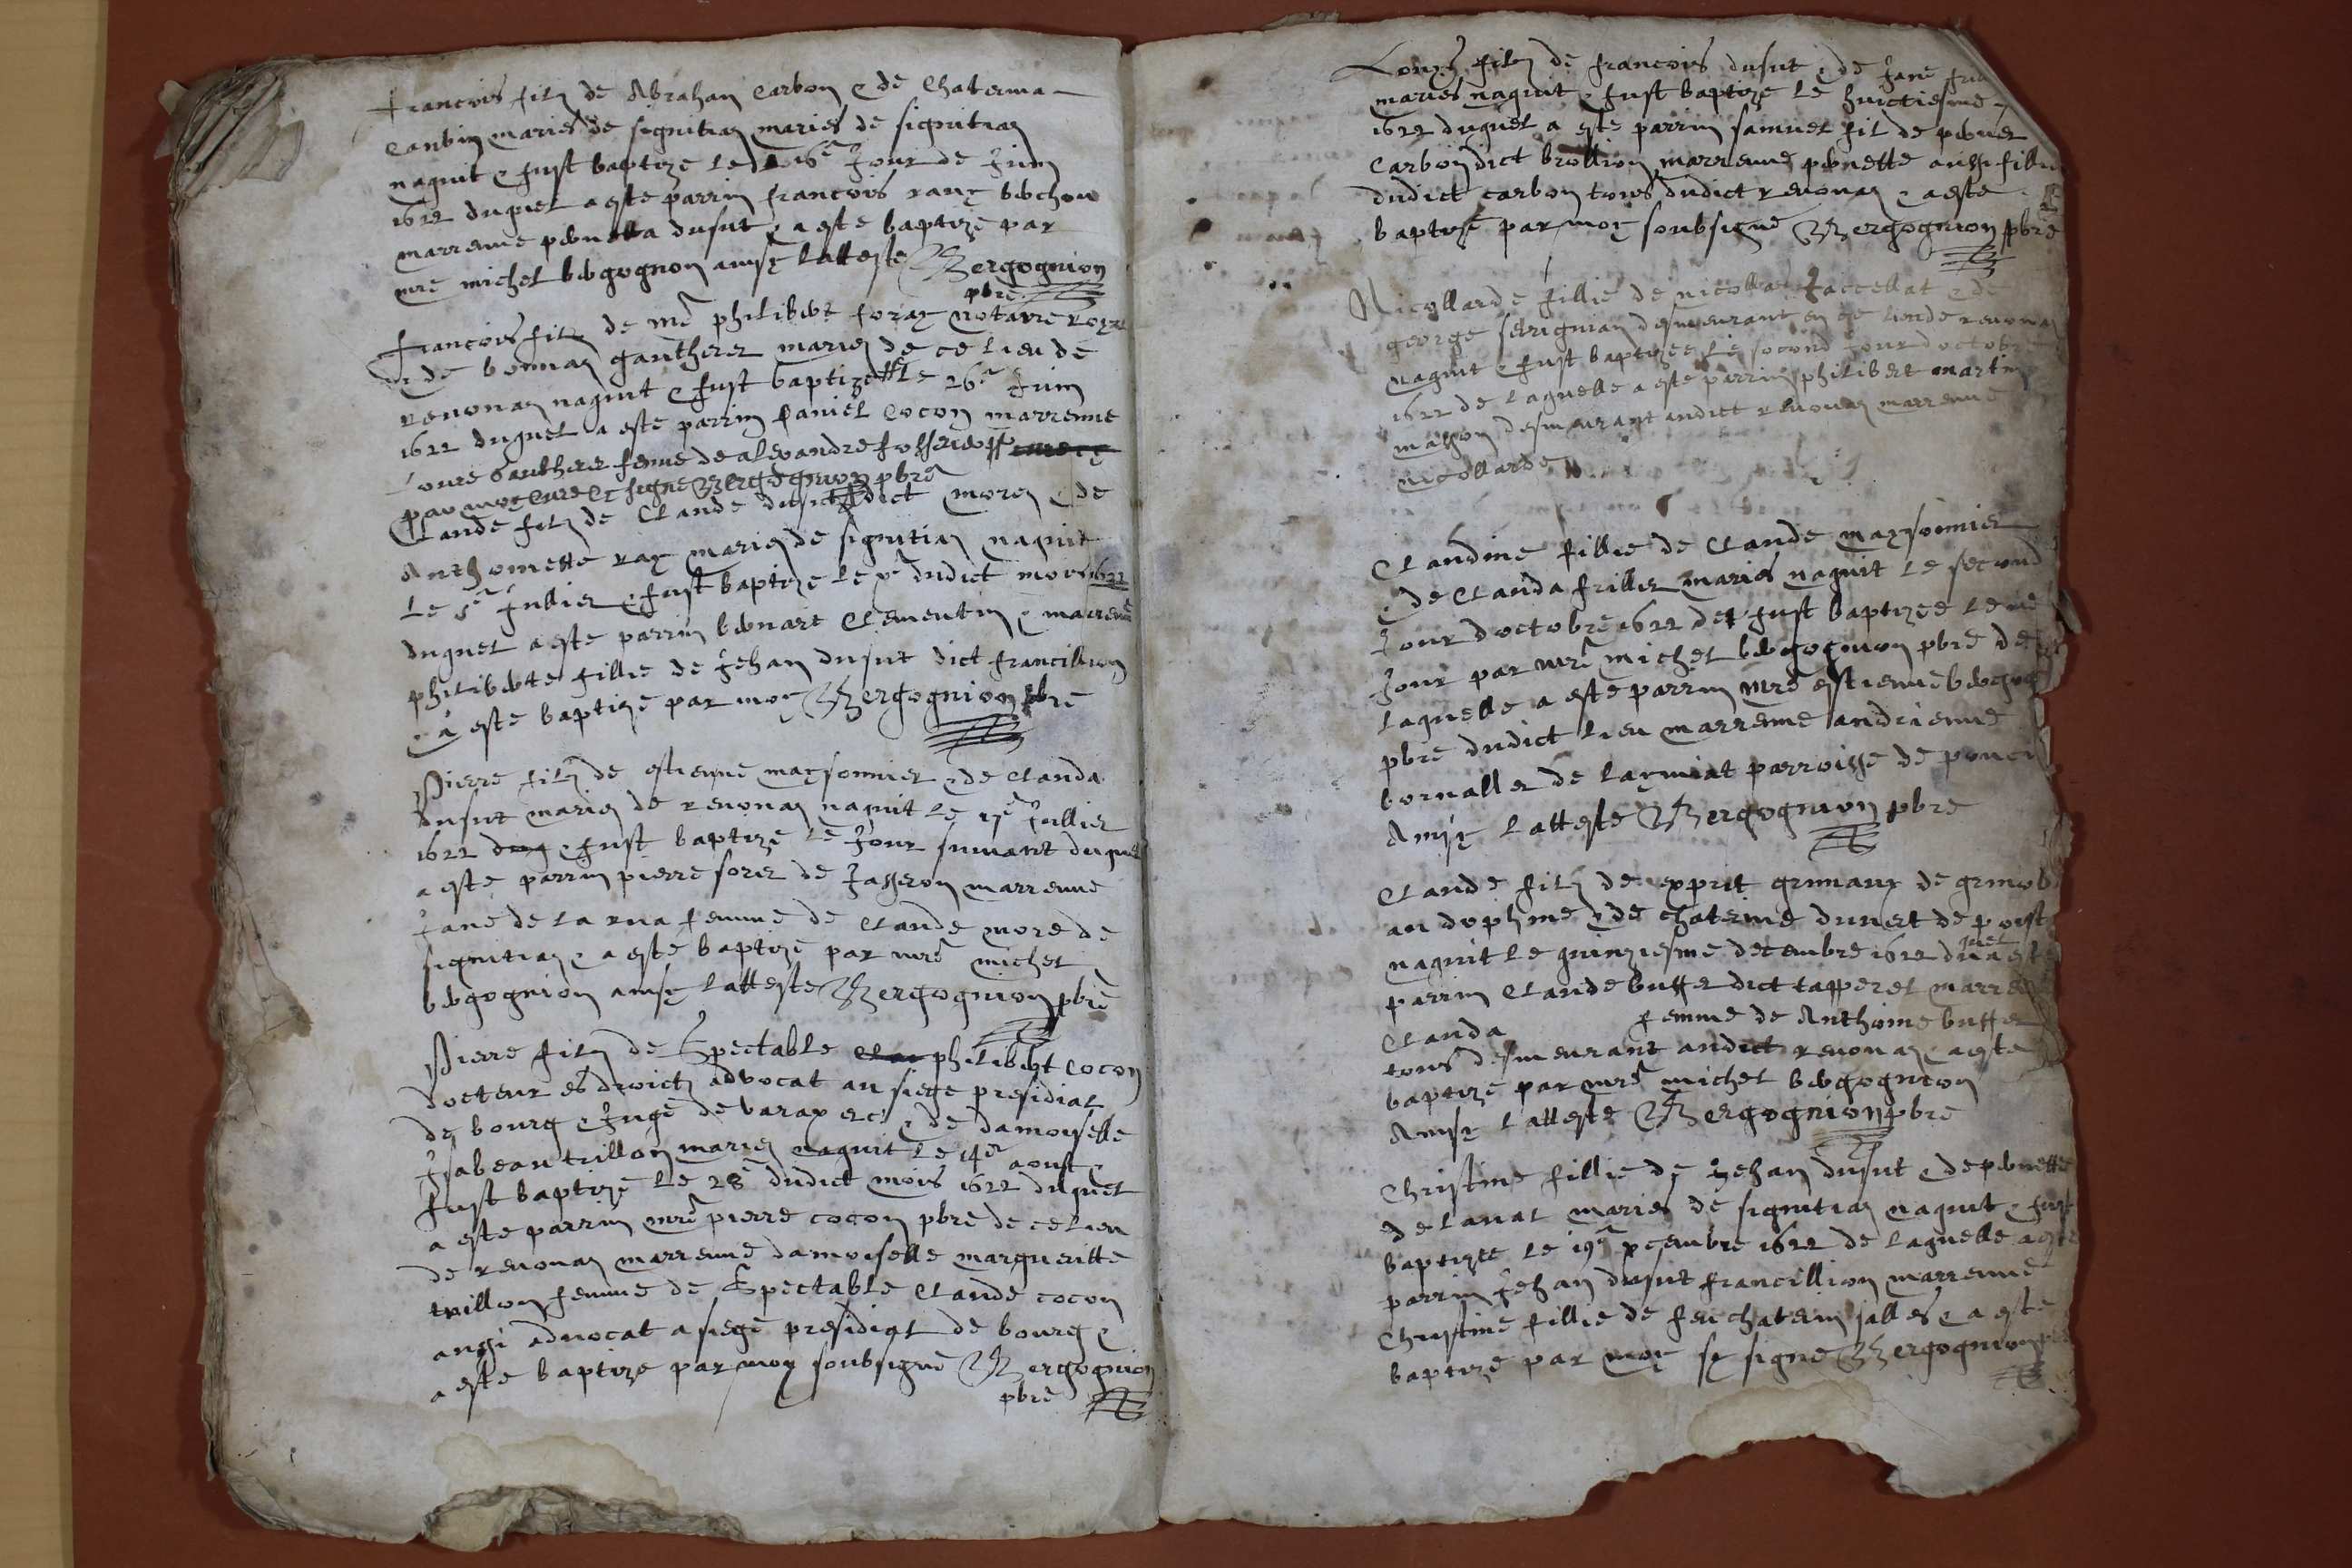 francois filz de Abrahan carbon & de Chaterina
canbin maries de signitiaz maries de signitiaz
naquit & fust baptize le 16e Jour de Juin
1622 duquel a este parrin francois ranc berchou
marrenne pernetta dusut & a este baptize par
mre michel bergognon ainsy latteste Bergognion
pbre
francois filz de me philibert foray notaire royal
& de bonnaz gautherer mariez de ce lieu de
reuonaz naquit & fust baptize le 26e Juin
1622 duquel a este parrin daniel cocon marrenne
Loure Gautherer femme de alexandre
par moy cure et signe Bergognion pbre
Claude filz de Claude dusut dict morez & de
Anthoinette ray mariez de signitiaz naquit
le 5e Jullier & fust baptize le xe dudict mois 1622
duquel a este parrin bernart Clementin & marrenne
philiberte fillie de Jehan dusut dict francillion
& a este baptize par moy Bergognion pbre
Pierre filz de estienne maysonnier & de Clauda
dusut mariez de reuonaz naquit le 17e Jullier
1622 & fust baptize le Jour suiuant duquel
a este parrin pierre sorer de Jasseron marrenne
Jane de la rua femme de Claude more de
signitiaz & a este baptize par mre michel
bergognion ainsy latteste Bergognion pbre
Pierre filz de Spectable philibert cocon
docteur es droictz advocat au siege presidial
de bourg & Juge de varax etc & de damoyselle
Isabeau trillon mariez naquit le 14e aoust &
fust baptize le 28e dudict mois 1622 duquel
a este parrin mre pierre cocon pbre de ce lieu
de reuonaz marrenne damoiselle margueritte
trillon femme de Spectable Claude cocon
aussi advocat a siege presidial de bourg &
a este baptize par moy soubsigne Bergognion
pbre
Louys filz de francois dusut & de Jane
maries naquit & fust baptize le huictiesme
1622 duquel a este parrin samuel fil de pierre
Carbon dict brollion marrenne pernette aussi fillie
dudict carbon tous dudict reuonaz & a este
baptize par moy soubsigne Bergognion pbre
Nicollarde fillie de nicollas Jaccellat & de
george serignian demeurant en ce lieu de reuonaz
naquit & fust baptizee le second Jour doctobre
1622 de laquelle a este parrin philibert martin
masson desmeurant audict reuonaz marrenne
nicollarde
Claudine fillie de Claude maysonnier
& de Clauda friller maries naquit le second
Jour doctobre 1622 & fust baptizee le
Jour par mre michel bergognion pbre de
laquelle a este parrin mre estienne
pbre dudict lieu marrenne andrienne
bornaller de larmiat parroisse de
Ainsy latteste Bergognion pbre
Claude filz de exprit grimaux de
au dophine & de chaterine
naquit le quinziesme decembre 1622 duquel a este
parrin Claude buffer dict tapperel marrenne
Clauda femme de Anthoine buffer
tous desmeurant audict reuonaz & a este
baptize par mre michel bergognion
Ainsy latteste Bergognion pbre
Christine fillie de Jehan dusut & de pernette
de laual maries de signitiaz naquit & fust
baptizee le 19e xcembre 1622 de laquelle a este
parrin Jehan dusut francillion marrenne
Christine fillie de feu chaterin salles & a este
baptize par moy sy signe Bergognion